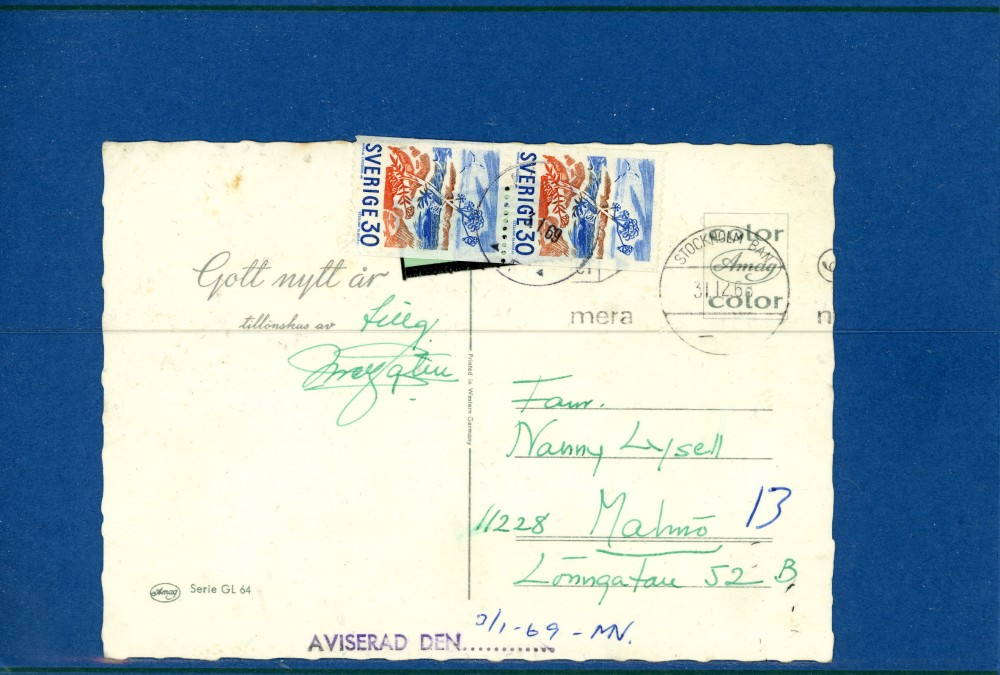 SVERIGE 30
SVERIGE 30
1 69
color
Amag
color
STOCKHOLM BAN
31.12.68
mera
Gott nytt år
tillönskas av
Printed in Western Germany
Fam.
Nanny Lysell
11228 Malmö 13
Lönngatan 52 B
Amag Serie GL 64
AVISERAD DEN............ 3/1-69 - MN.